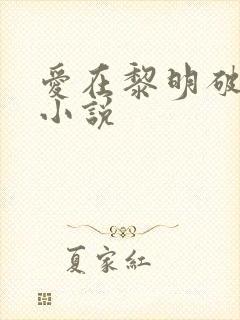 愛在黎明破
小說
夏家紅